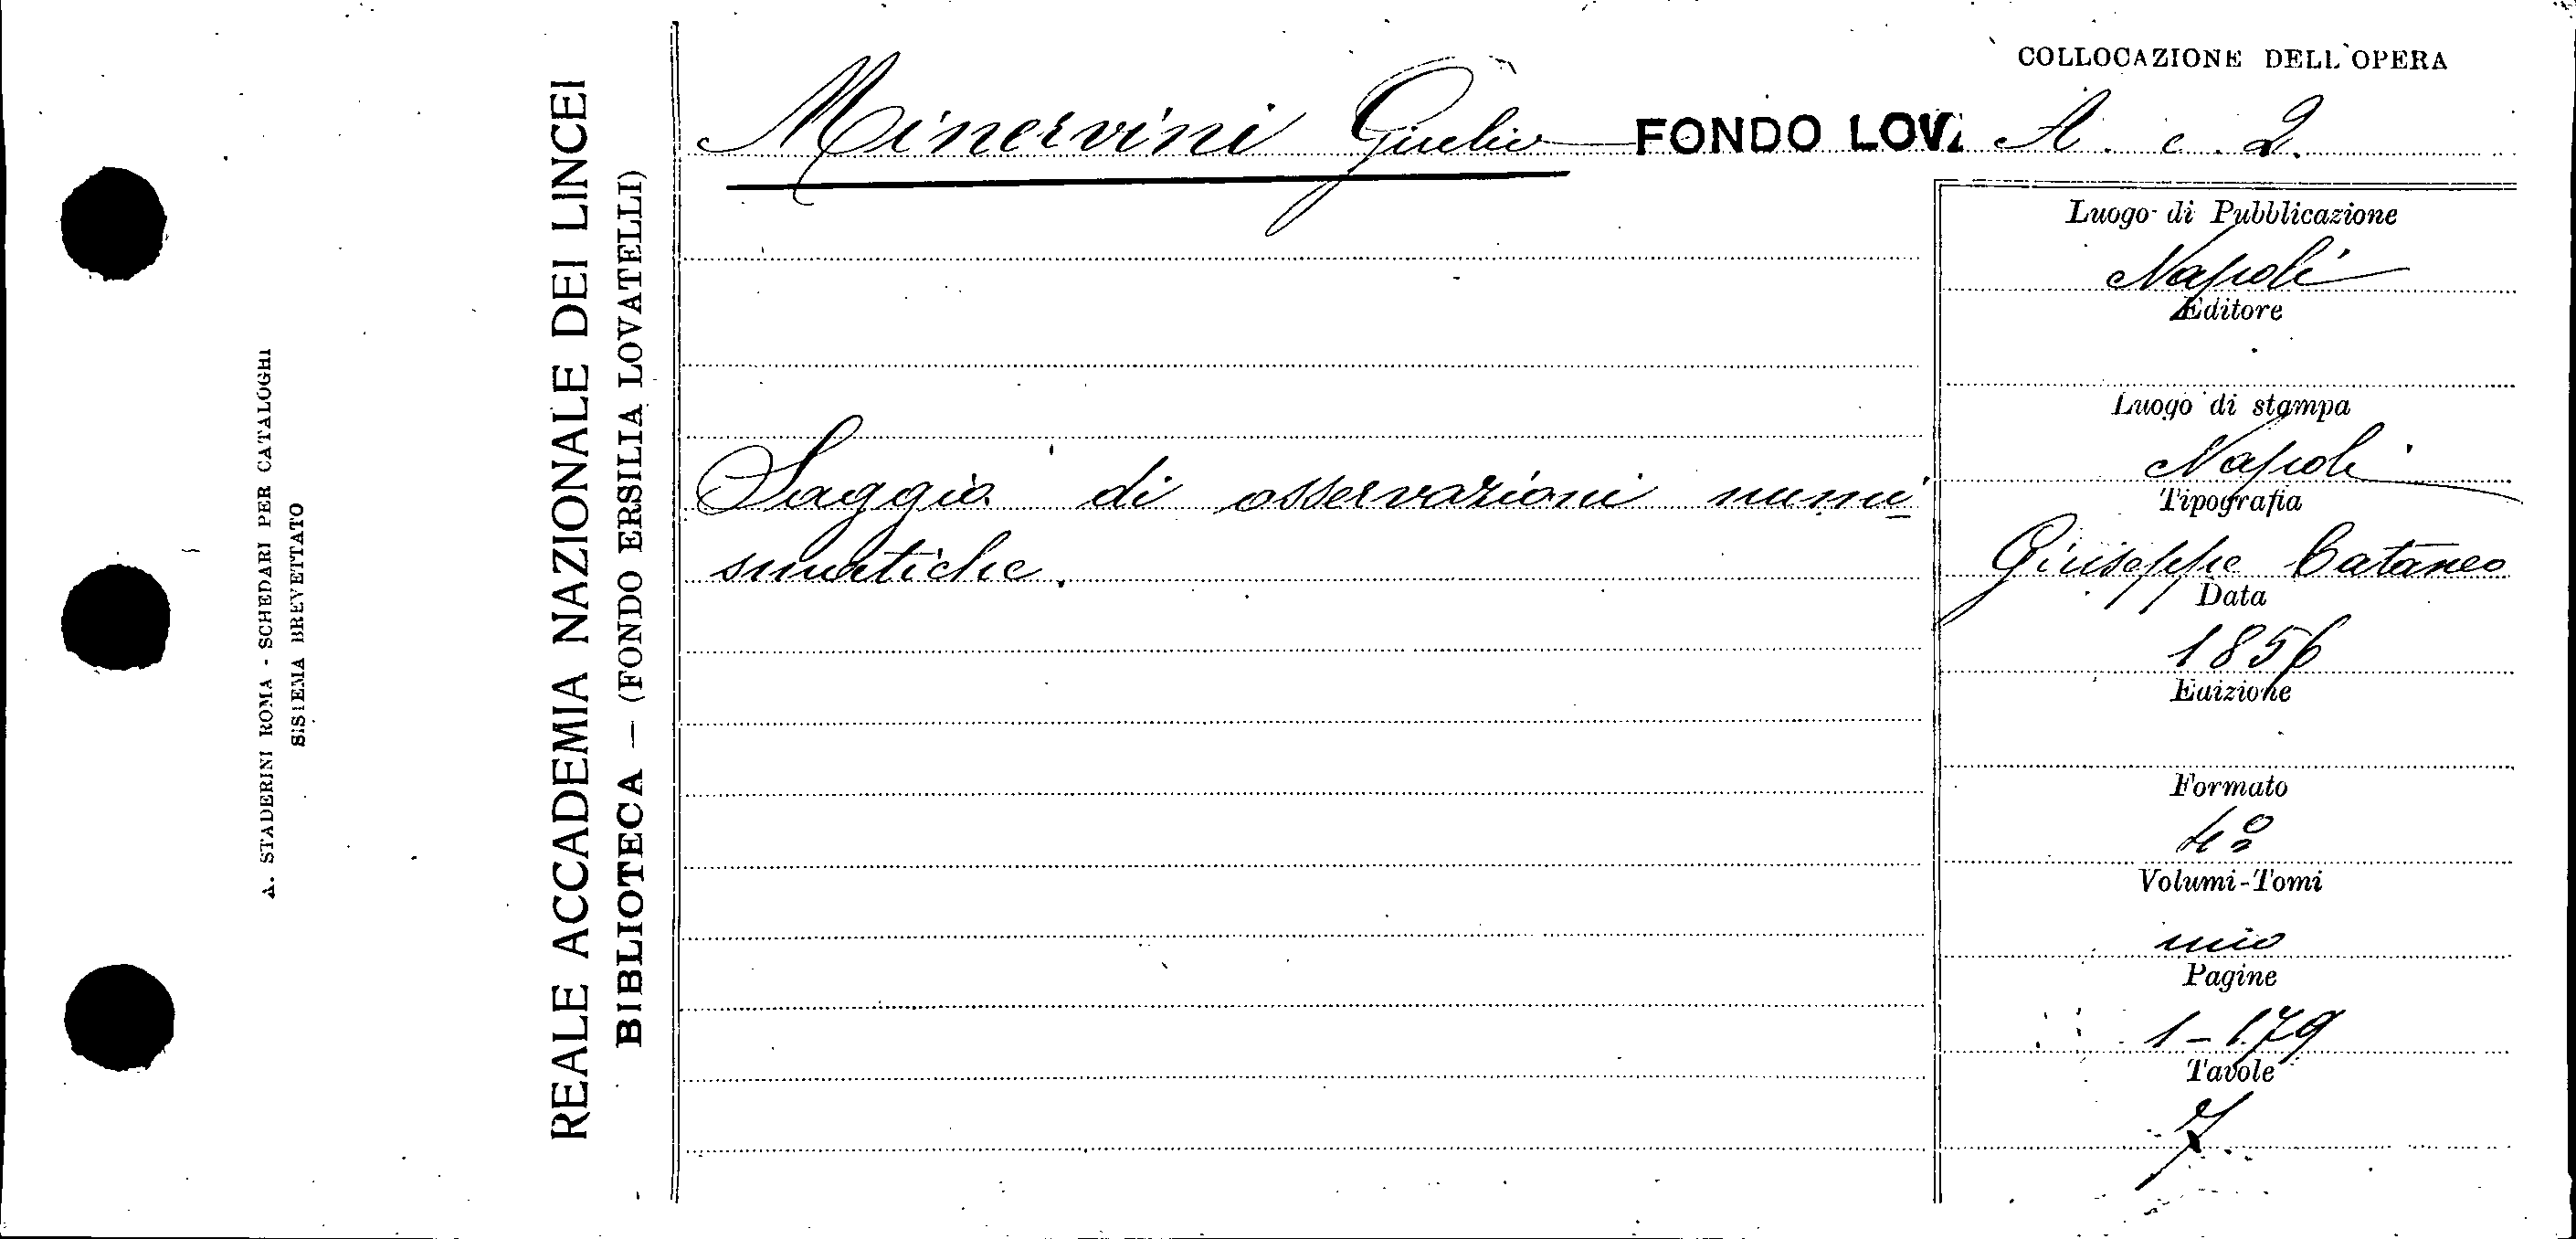 A. STADERINI ROMA - SCHEDARI PER CATALOGHI
SISTEMA BREVETTATO
REALE ACCADEMIA NAZIONALE DEI LINCEI
BIBLIOTECA — (FONDO ERSILIA LOVATELLI)
COLLOCAZIONE DELL'OPERA
Minervini Giulio FONDO LOV. A. c. 2.
Saggio di osservazioni numi
smatiche.
Luogo di Pubblicazione
Napoli
Editore
Luogo di stampa
Napoli
Tipografia
Giuseppe Cataneo
Data
1856
Edizione
Formato
4º
Volumi-Tomi
uno
Pagine
1-179
Tavole
7